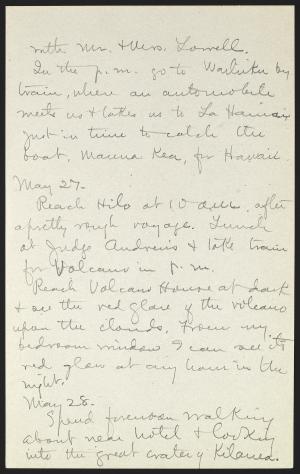 with Mr. & Mrs. Lowell.
In the p.m. go to Wailuku by
train, where an automobile
meets us & takes us to La Haina
just in time to catch the
boat, Mauna Kea, for Hawaii.
May 27.
Reach Hilo at 10 a.m. after
a pretty rough voyage. Lunch
at Judge Andrews & take train
for Volcano in p.m.
Reach Volcano House at dark
& see the red glare of the volcano
upon the clouds. From my
bedroom window I can see its
red glow at any hour in the
night.
May 28.
Spend forenoon walking
about near hotel & looking
into the great crater of Kilauea.